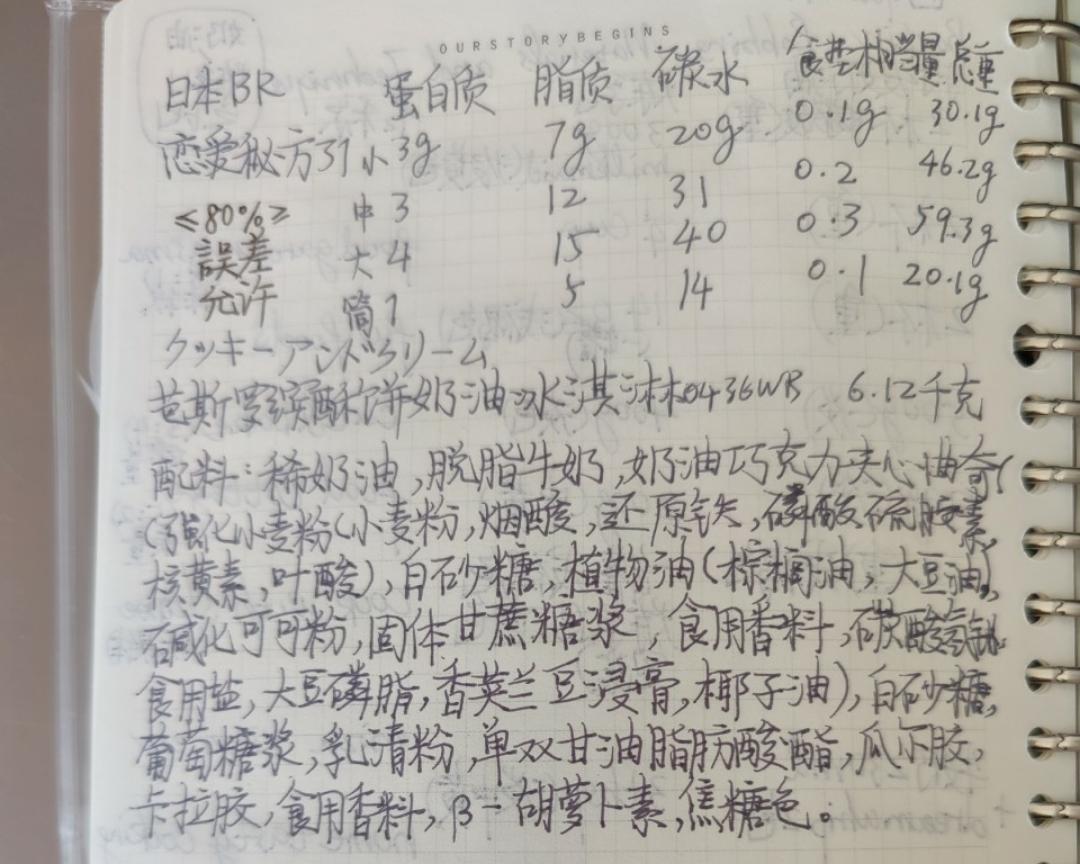 OURSTORYBEGINS
日本BR 蛋白质 脂质 碳水 食塩相当量 总重
恋爱秘方31 小 3g 7g 20g 0.1g 30.1g
≤80%≥ 中 3 12 31 0.2 46.2g
誤差 大 4 15 40 0.3 59.3g
允许 筒 1 5 14 0.1 20.1g
クッキーアンドクリーム
芭斯罗缤酥饼奶油冰淇淋0436WR 6.12千克
配料：稀奶油,脱脂牛奶,奶油巧克力夹心曲奇(
(強化小麦粉(小麦粉,烟酸,还原铁,磷酸硫胺素,
核黄素,叶酸),白砂糖,植物油(棕榈油,大豆油),
碱化可可粉,固体甘蔗糖浆,食用香料,碳酸氢钠
食用盐,大豆磷脂,香荚兰豆浸膏,椰子油),白砂糖,
葡萄糖浆,乳清粉,单双甘油脂肪酸酯,瓜尔胶,
卡拉胶,食用香料,β-胡萝卜素,焦糖色。